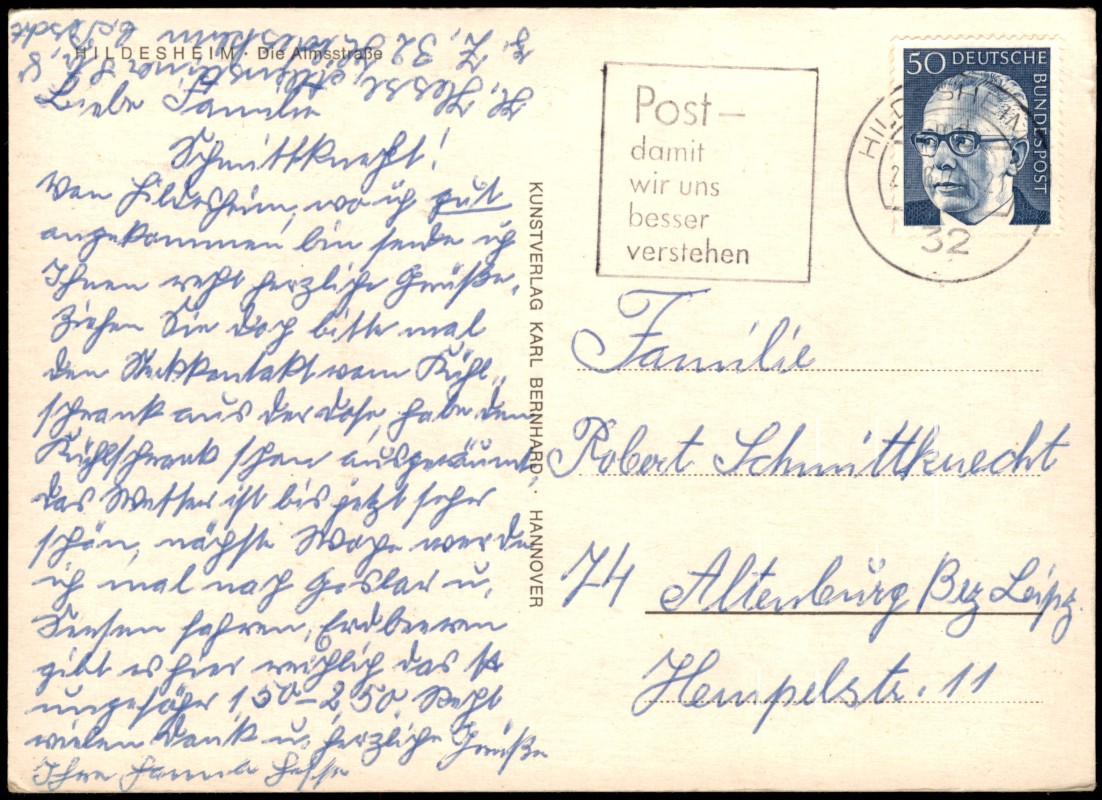 HILDESHEIM · Die Almsstraße
Liebe Familie
Schmittknecht!
Von Hildesheim, wo ich gut
angekommen bin sende ich
Ihnen recht herzliche Grüße,
Ziehen Sie doch bitte mal
den Steckkontakt vom Kühl„
schrank aus der Dose, habe den
Kühlschrank schon ausgeräumt,
das Wetter ist bis jetzt sehr
schön, nächste Woche werde
ich mal nach Goslar u.
Seesen fahren, Erdbeeren
gibt es hier reichlich das
ungefähr 150–250 Recht
vielen Dank u. herzliche Grüße
Ihre Hesse
KUNSTVERLAG KARL BERNHARD · HANNOVER
Post –
damit
wir uns
besser
verstehen
50 DEUTSCHE
BUNDESPOST
HILDESHEIM
32
Familie
Robert Schmittknecht
74 Altenburg Bez Leipz.
Hempelstr. 11